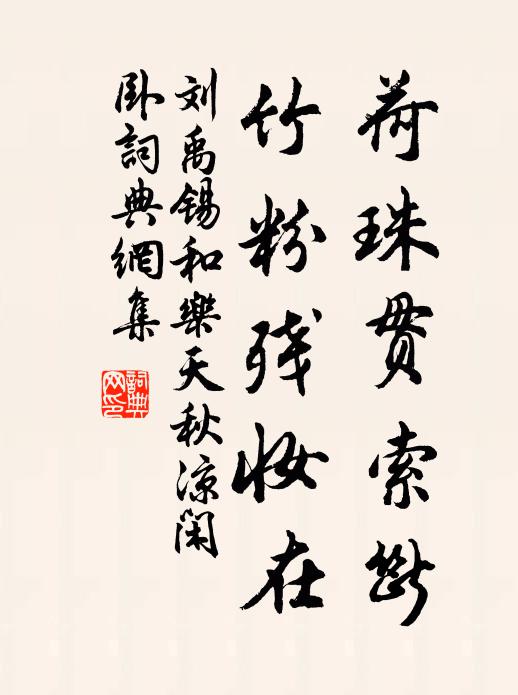 荷珠贯索断
竹粉残妆在
刘禹锡和樂天秋凉闲
卧詞典網集
詞典
网印